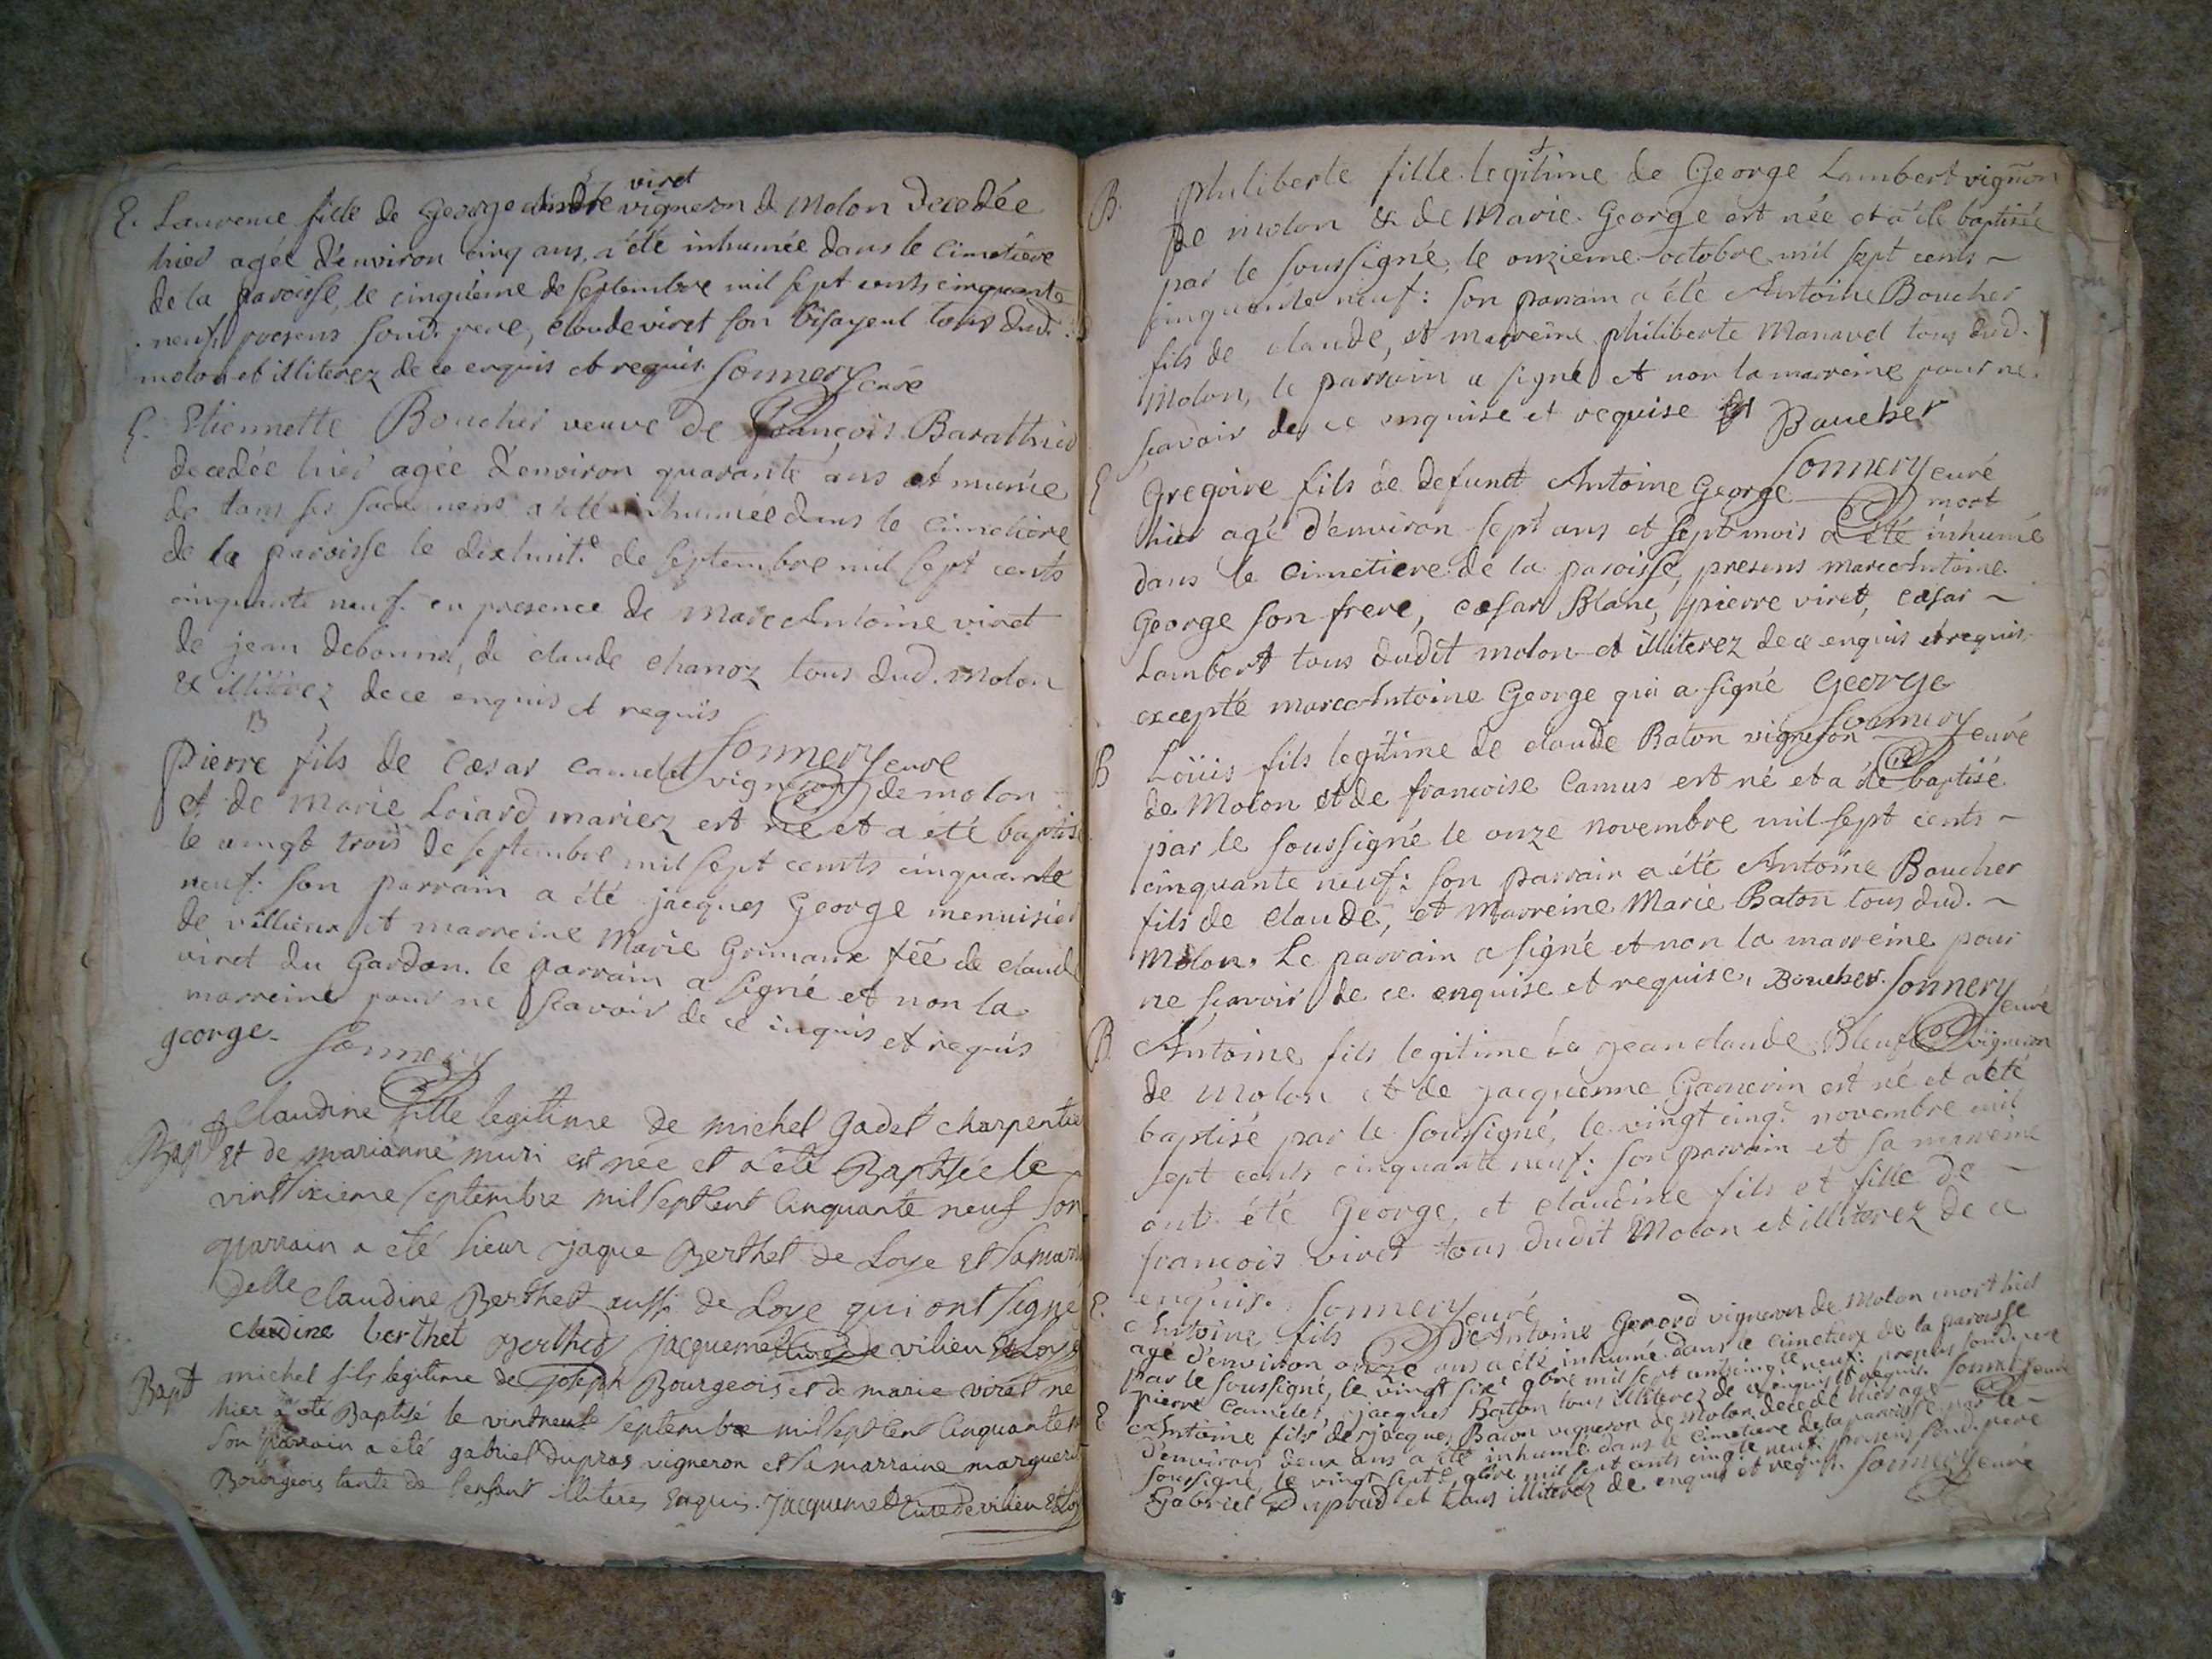 viret
E. Laurence fille de George andré vigneron de Molon decedée
hier agée d'environ cinq ans, a été inhumée dans le cimetiere
de la paroisse, le cinquieme de septembre mil sept cents cinquante
neuf, presens sond. pere, claude viret son bisayeul tous dud.
molon et illiterez de ce enquis et requis. Sonnery curé
E. Etiennette Boucher veuve de François Barathier
decedée hier agée d'environ quarante ans et munie
de tous ses sacremens a été inhumée dans le cimetiere
de la paroisse le dixhuit.e de septembre mil sept cents
cinquante neuf. en presence de Marc Antoine viret
de jean debonne, de claude chanoz tous dud. Molon
& illiterez de ce enquis et requis
Sonnery curé
B
Pierre fils de Cæsar camelet vigneron de molon
et de Marie Loiard mariez est né et a été baptisé
le vingt trois de septembre mil sept cents cinquante
neuf: son parrain a été jacques George menuisier
de villieux et marreine Marie Grimaux fẽe de claude
viret du Gardon. le parrain a signé et non la
marreine pour ne sçavoir de ce inquis et requis
george. Sonnery
Bapt Claudine fille legitime de michel Gadet charpentier
Et de marianne muri est née et a été Baptisée le
vintsixieme septembre mil sept cent Cinquante neuf son
parrain a été sieur jaque Berthet de Loye et sa marr
delle Claudine Berthet aussi de Loye qui ont signé
claudine berthet Berthet jacquemet Curé de vilieu et Loye
Bapt michel fils legitime de joseph Bourgeois et de marie viret né
hier a été Baptisé le vintneufe septembre mil sept cent Cinquante n
son parrain a été gabriel dupras vigneron et sa marraine marguerit
Bourgeois tante de l'enfant illiteres enquis. jacquemet Curé de vilieu et Loy
B. philiberte fille legitime de George Lambert vigñon
de molon & de Marie George est née et a été baptisée
par le soussigné, le onzieme octobre mil sept cents ~
cinquante neuf: son parrain a été Antoine Boucher
fils de claude, et marreine philiberte Manavel tous dud.
Molon, le parrain a signé et non la marreine pour ne
sçavoir de ce enquise et requise Boucher
Sonnery curé
E Gregoire fils de defunct Antoine George mort
hier agé d'environ sept ans et sept mois a été inhumé
dans le cimetiere de la paroisse, presens marc Antoine
George son frere, cæsar Blanc, pierre viret, cæsar ~
Lambert tous dudit molon et illiterez de ce enquis et requis
excepté marc Antoine George qui a signé George
Sonnery curé
B Loüis fils legitime de claude Baton vigneron
de Molon et de francoise Camus est né et a été baptisé
par le soussigné le onze novembre mil sept cents ~
cinquante neuf: son parrain a été Antoine Boucher
fils de claude, et Marreine Marie Baton tous dud. ~
Molon. Le parrain a signé et non la marreine pour
ne scavoir de ce enquise et requise. Boucher. Sonnery curé
B. Antoine fils legitime de jean claude vigneron
de Molon et de jacquemme Garnerin est né et a été
baptisé par le soussigné, le vingt cinq.e novembre mil
sept cents cinquante neuf: son parrain et sa marreine
ont été George, et claudine fils et fille de ~
francois viret tous dudit Molon et illiterez de ce
enquis. Sonnery curé
E. Antoine fils d'Antoine vigneron de Molon mort hier
agé d'environ onze ans a été inhumé dans le cimetiere de la paroisse
par le soussigné, le vingt six.e 9bre mil sept cents cinq.te neuf: presens sond. pere
pierre Camelet, jacques Baton tous illiterez de ce enquis et requis. Sonnery curé
E Antoine fils de jacques Baton vigneron de Molon decedé hier agé
d'environ deux ans a été inhumé dans le cimetiere de la paroisse par le ~
soussigné, le vingt sept.e 9bre mil sept cents cinq.te neuf. presens sond. pere
Gabriel Duprad et tous illiterez de enquis et requis. Sonnery curé